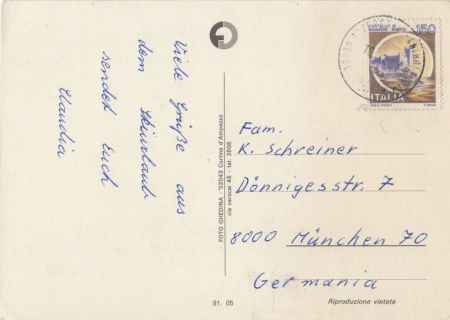 Viele Grüße aus
dem Skiurlaub
sendet Euch
Claudia
FOTO GHEDINA - 32043 Cortina d'Ampezzo
via verocai 45 - tel. 3606
91. 05
150
ITALIA
Fam.
K. Schreiner
Dönnigesstr. 7
8000 München 70
Germania
Riproduzione vietata